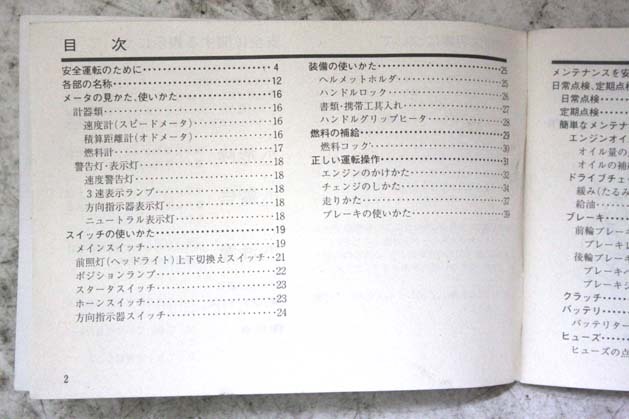 目次
安全運転のために・・・・・・・・・・・・・・・・・・4
各部の名称・・・・・・・・・・・・・・・・・・・・・・12
メータの見かた、使いかた・・・・・・・・・・・・16
計器類・・・・・・・・・・・・・・・・・・・・・・・・16
速度計(スピードメータ)・・・・・・・・・・・・16
積算距離計(オドメータ)・・・・・・・・・・・・16
燃料計・・・・・・・・・・・・・・・・・・・・・・・・17
警告灯・表示灯・・・・・・・・・・・・・・・・・・18
速度警告灯・・・・・・・・・・・・・・・・・・・・18
3速表示ランプ・・・・・・・・・・・・・・・・・・18
方向指示器表示灯・・・・・・・・・・・・・・・・18
ニュートラル表示灯・・・・・・・・・・・・・・18
スイッチの使いかた・・・・・・・・・・・・・・・・19
メインスイッチ・・・・・・・・・・・・・・・・・・19
前照灯(ヘッドライト)上下切換えスイッチ・・・21
ポジションランプ・・・・・・・・・・・・・・・・22
スタータスイッチ・・・・・・・・・・・・・・・・23
ホーンスイッチ・・・・・・・・・・・・・・・・・・23
方向指示器スイッチ・・・・・・・・・・・・・・24
2
装備の使いかた・・・・・・・・・・・・・・・・・・25
ヘルメットホルダ・・・・・・・・・・・・・・・・25
ハンドルロック・・・・・・・・・・・・・・・・・・26
書類・携帯工具入れ・・・・・・・・・・・・・・27
ハンドルグリップヒータ・・・・・・・・・・・・28
燃料の補給・・・・・・・・・・・・・・・・・・・・・・29
燃料コック・・・・・・・・・・・・・・・・・・・・30
正しい運転操作・・・・・・・・・・・・・・・・・・31
エンジンのかけかた・・・・・・・・・・・・・・32
チェンジのしかた・・・・・・・・・・・・・・・・34
走りかた・・・・・・・・・・・・・・・・・・・・・・37
ブレーキの使いかた・・・・・・・・・・・・・・39
メンテナンスを安
日常点検、定期点検
日常点検・・・・
定期点検・・・・
簡単なメンテナン
エンジンオイ
オイル量の点
オイルの補給
ドライブチェ
緩み(たるみ
給油・・・・
ブレーキ・・・・
前輪ブレーキ
ブレーキレ
後輪ブレーキ
ブレーキペ
ブレーキシ
クラッチ・・・・
バッテリ・・・・
バッテリター
ヒューズ・・・・
ヒューズの点